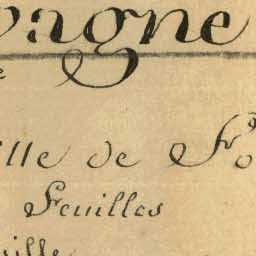 pagne
e
ille de Fo
Feuilles
uille